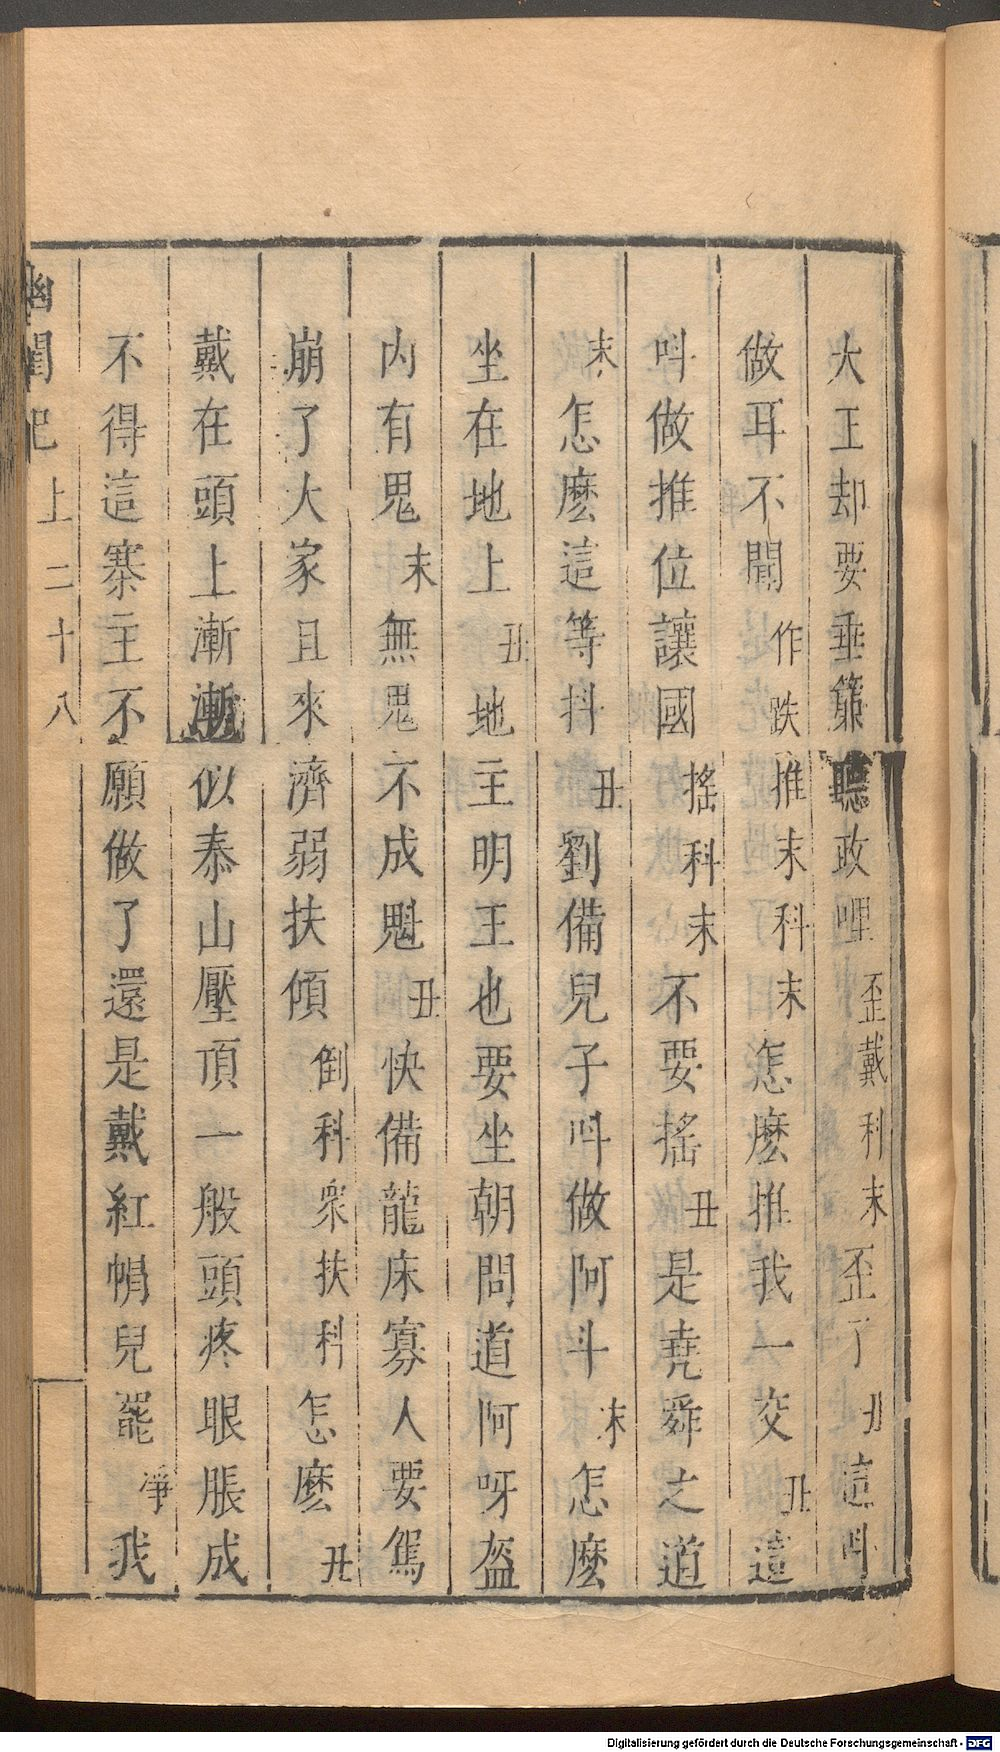 大王却要垂簾聽政哩歪戴科末歪了丑這呌
做耳不聞作跌推末科末怎麽推我一交丑這
呌做推位讓國搖科末不要搖丑是堯舜之道
末怎麽這等抖丑劉備兒子呌做阿斗末怎麽
坐在地上丑地主明王也要坐朝問道阿呀盔
内有鬼末無鬼不成魁丑快備龍床寡人要駕
崩了大家且來濟弱扶傾倒科衆扶科怎麽丑
戴在頭上漸漸似泰山壓頂一般頭疼眼脹成
不得這寨主不願做了還是戴紅帩兒罷淨我
幽閨記上二十八
Digitalisierung gefördert durch die Deutsche Forschungsgemeinschaft - DFG